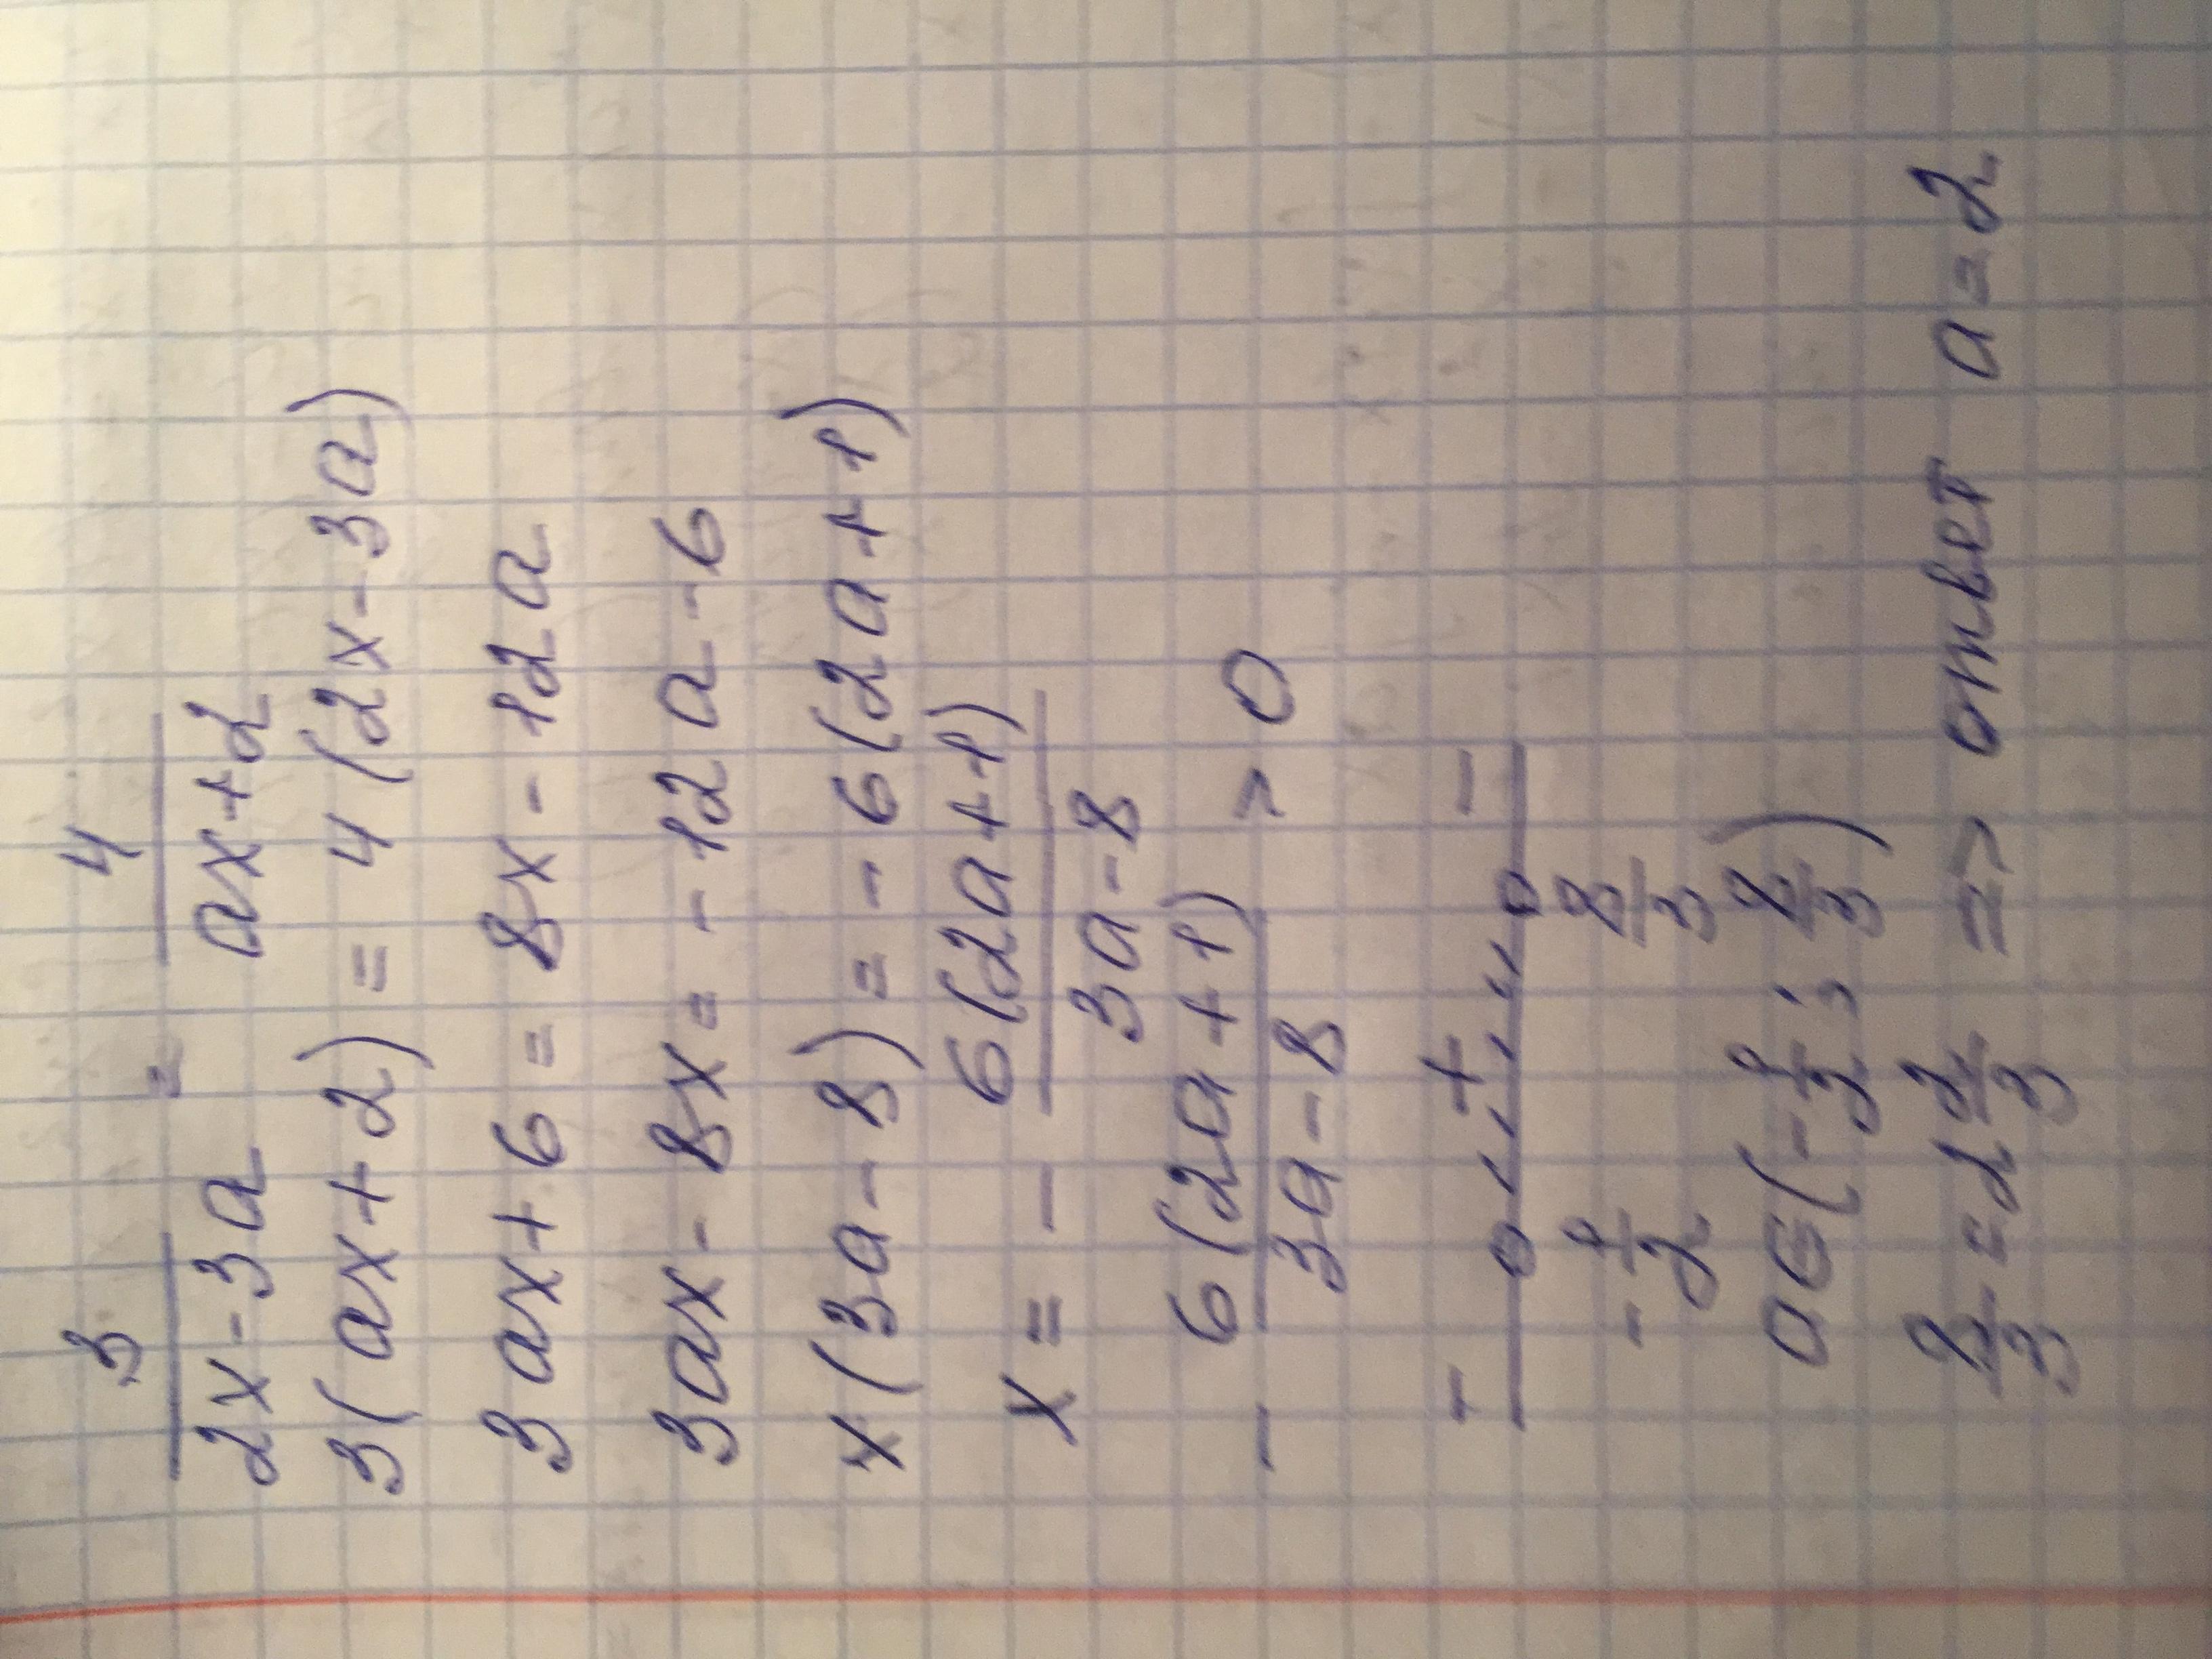 3/(2x-3a) = 4/(ax+2)
3(ax+2) = 4(2x-3a)
3ax+6 = 8x-12a
3ax-8x = -12a-6
x(3a-8) = -6(2a+1)
x = - 6(2a+1)/(3a-8)
- 6(2a+1)/(3a-8) > 0
- + -
-1/2 8/3
a∈(-1/2; 8/3)
8/3 = 2 2/3 => ответ a=2